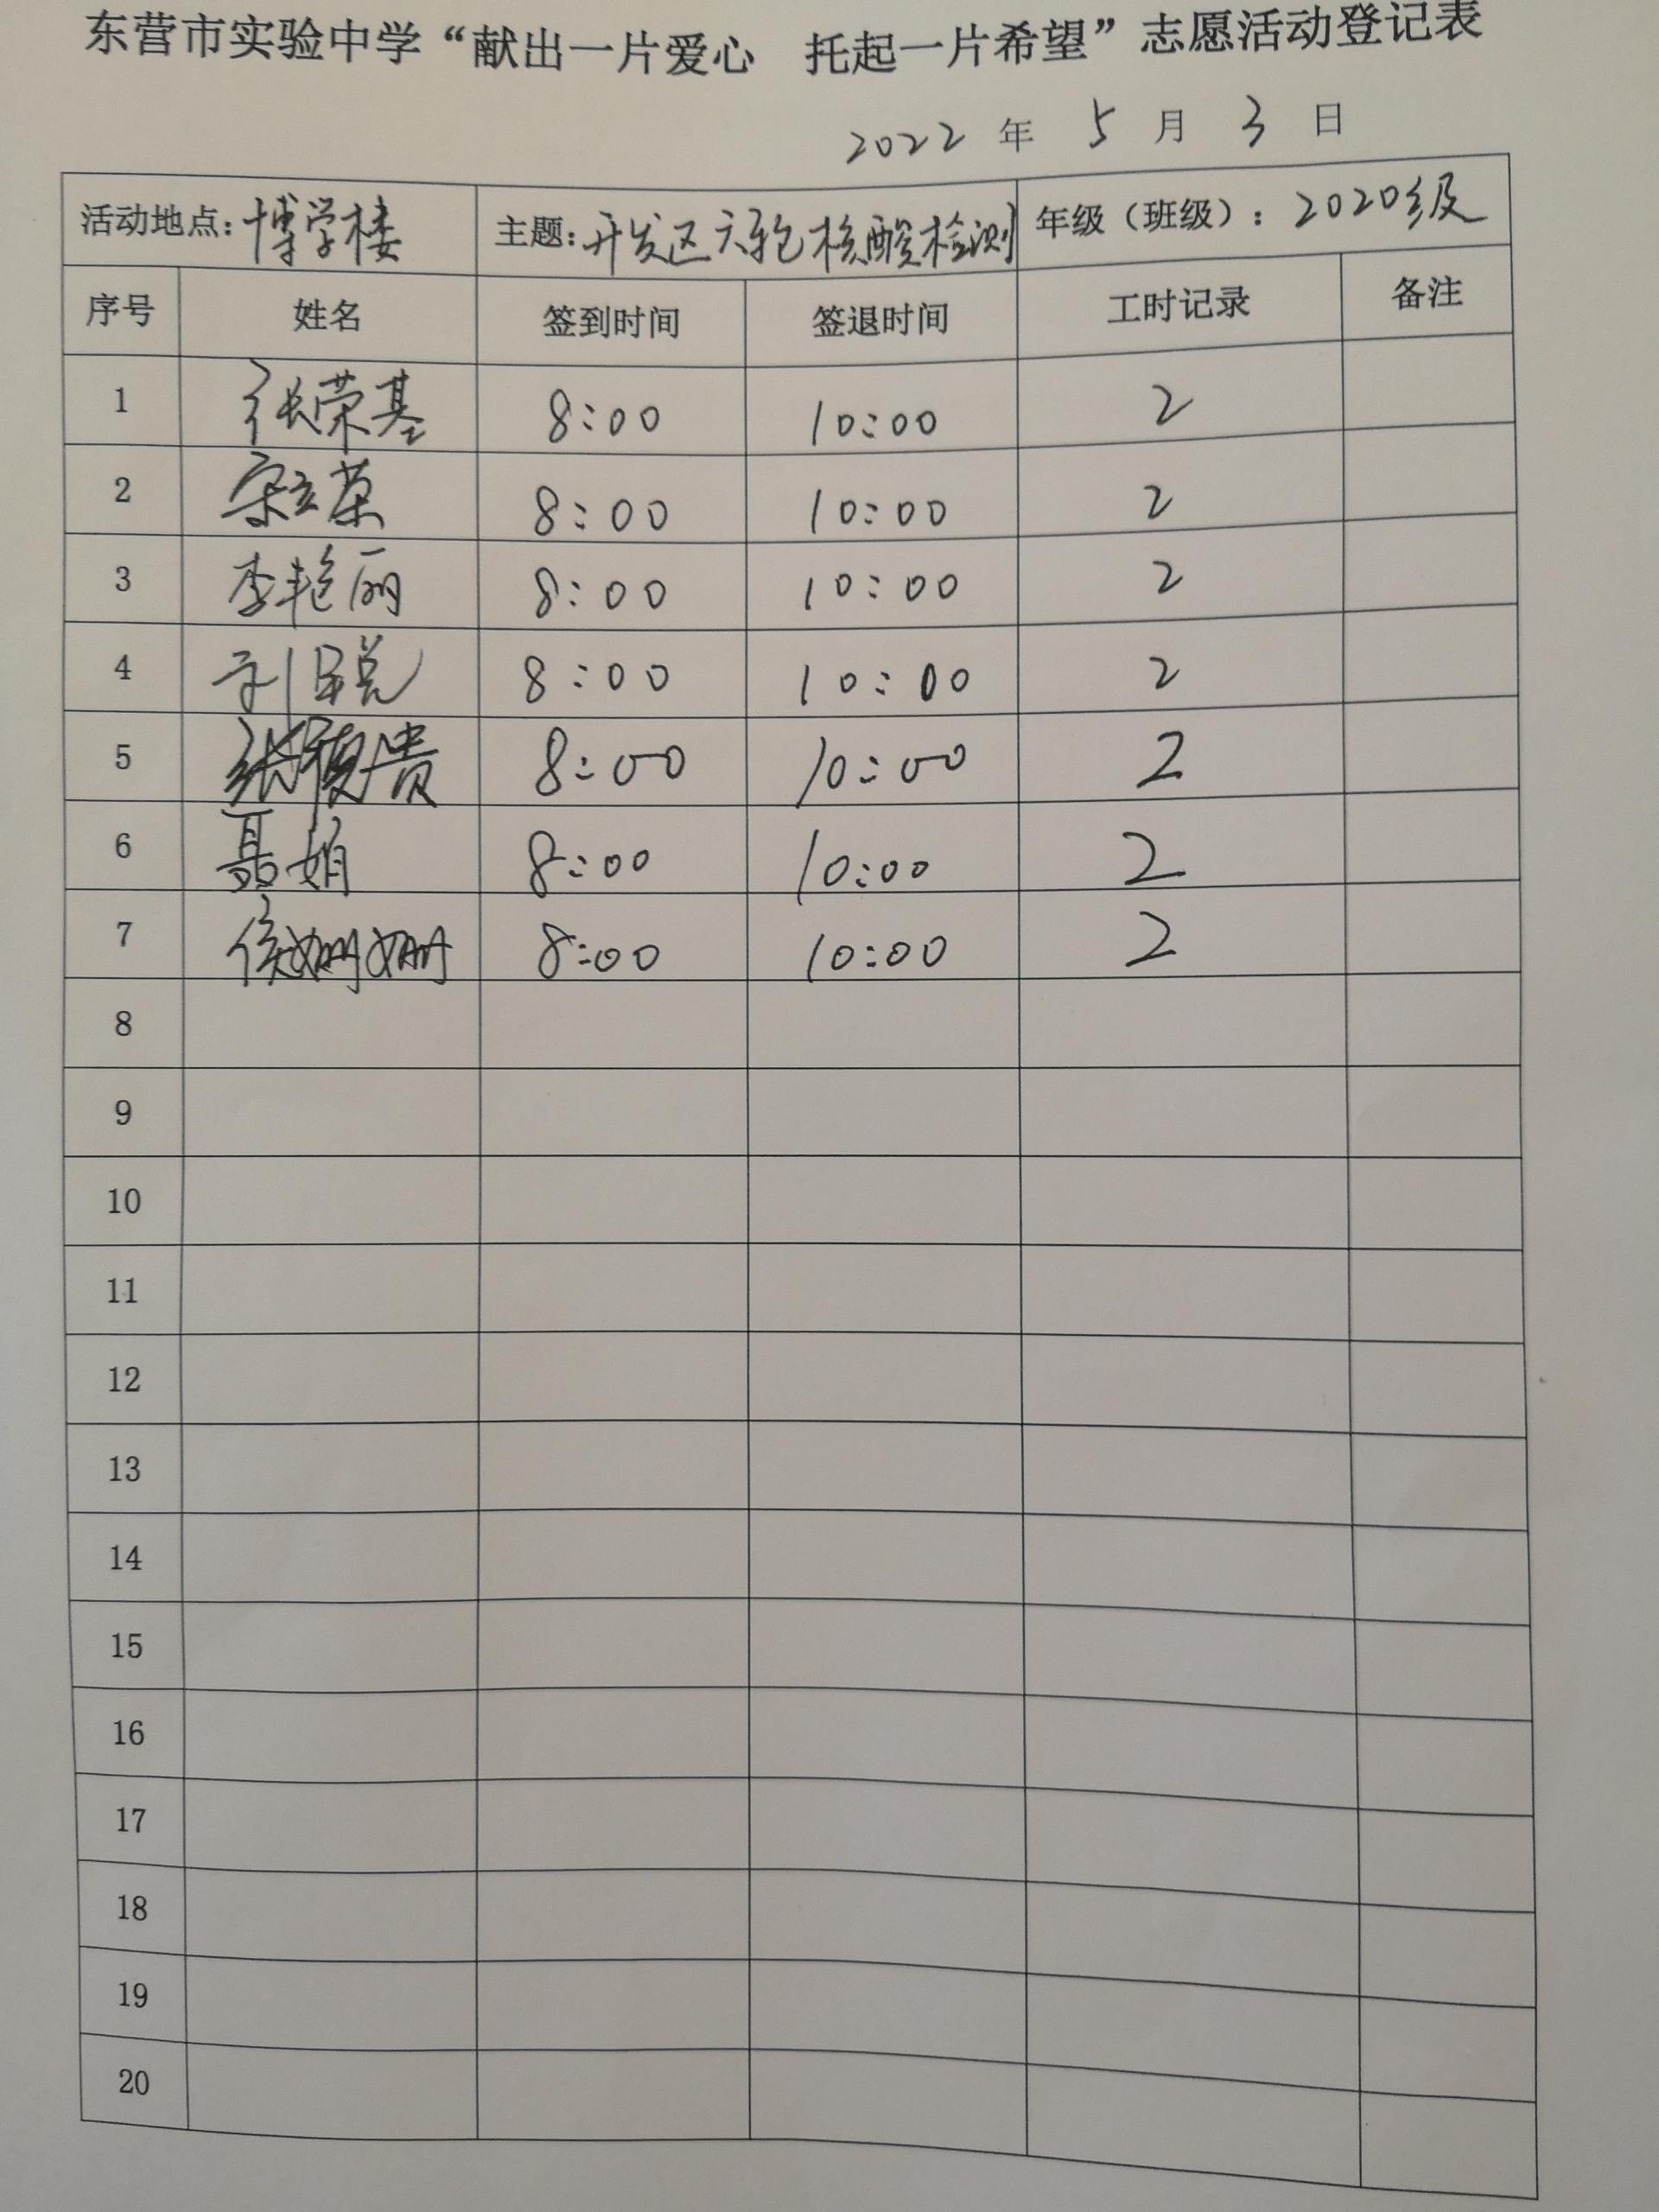 东营市实验中学“献出一片爱心 托起一片希望”志愿活动登记表
2022 年 5 月 3 日
活动地点：博学楼 主题：开发区六轮核酸检测 年级（班级）：2020级
序号 姓名 签到时间 签退时间 工时记录 备注
1 张荣基 8:00 10:00 2
2 宋立荣 8:00 10:00 2
3 李艳丽 8:00 10:00 2
4 8:00 10:00 2
5 张 贵 8:00 10:00 2
6 聂娟 8:00 10:00 2
7 侯姗姗 8:00 10:00 2
8
9
10
11
12
13
14
15
16
17
18
19
20